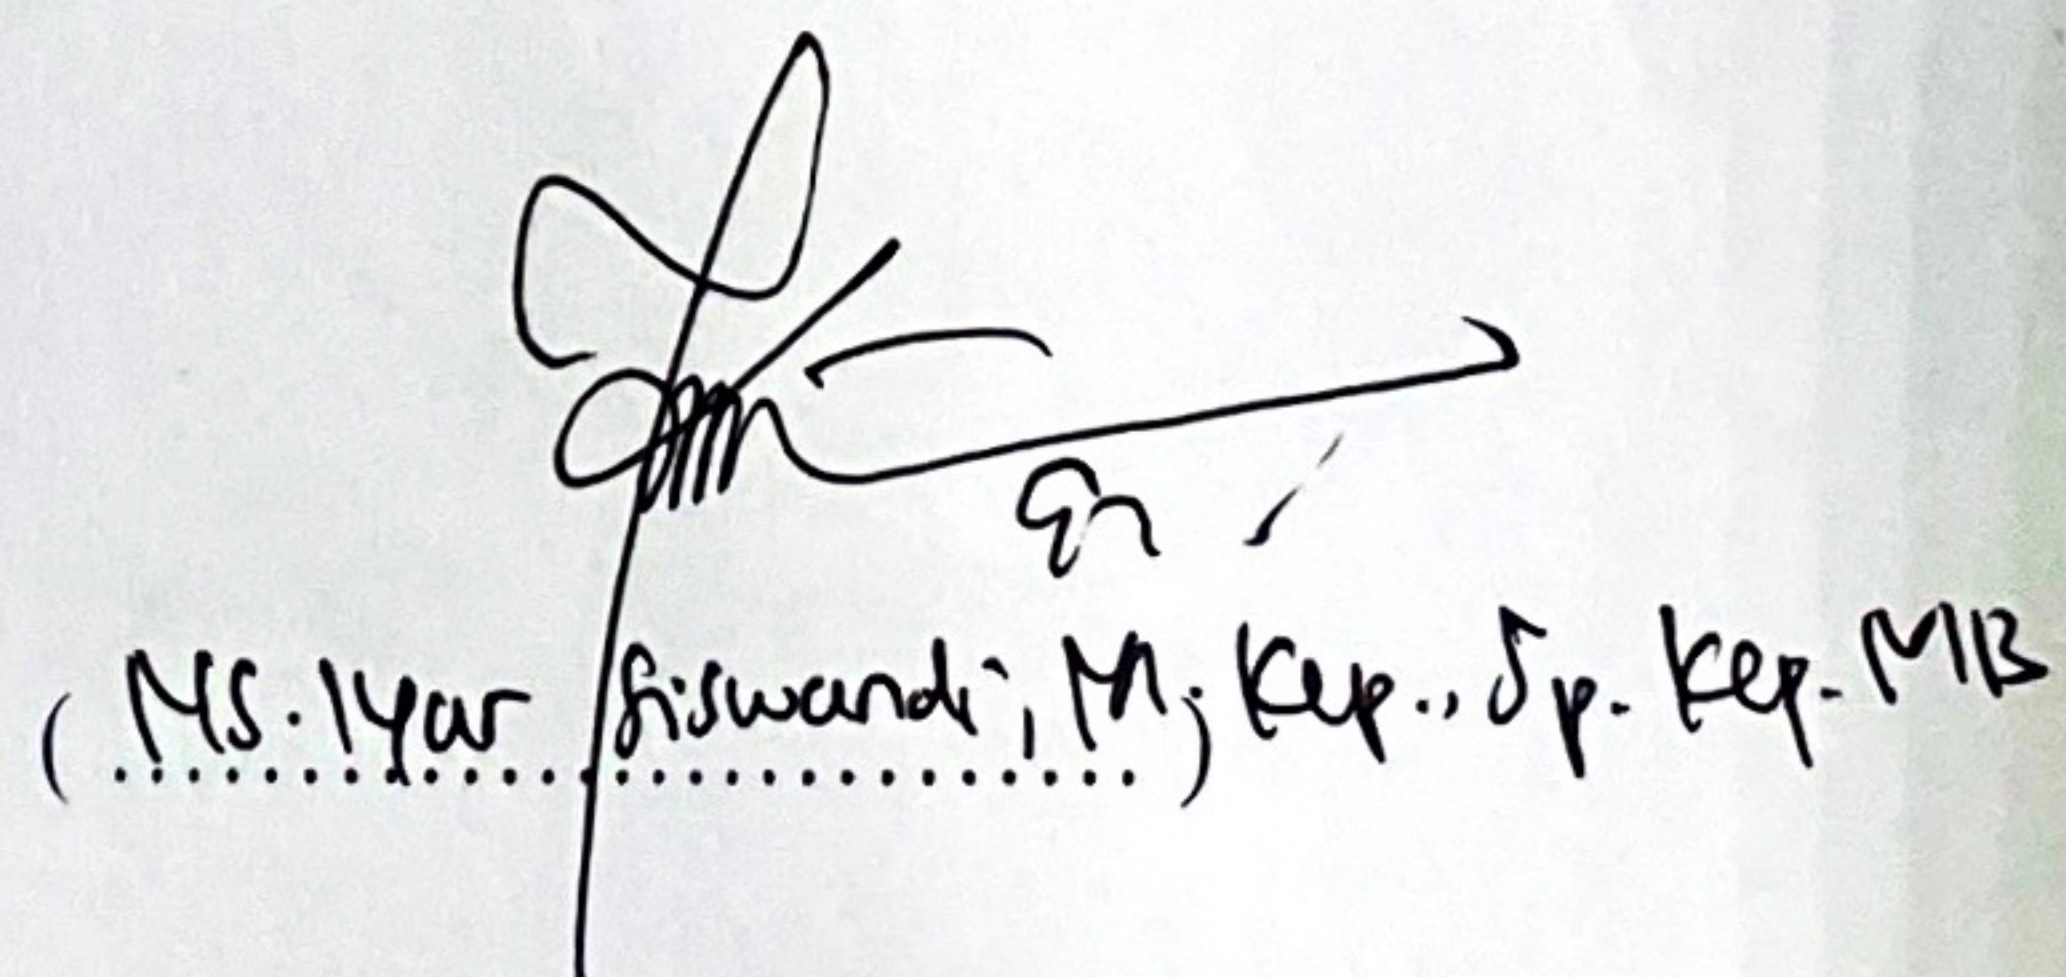 ( Ns. Iyar Siswandi, M, Kep., Sp. Kep. MB
...............................)